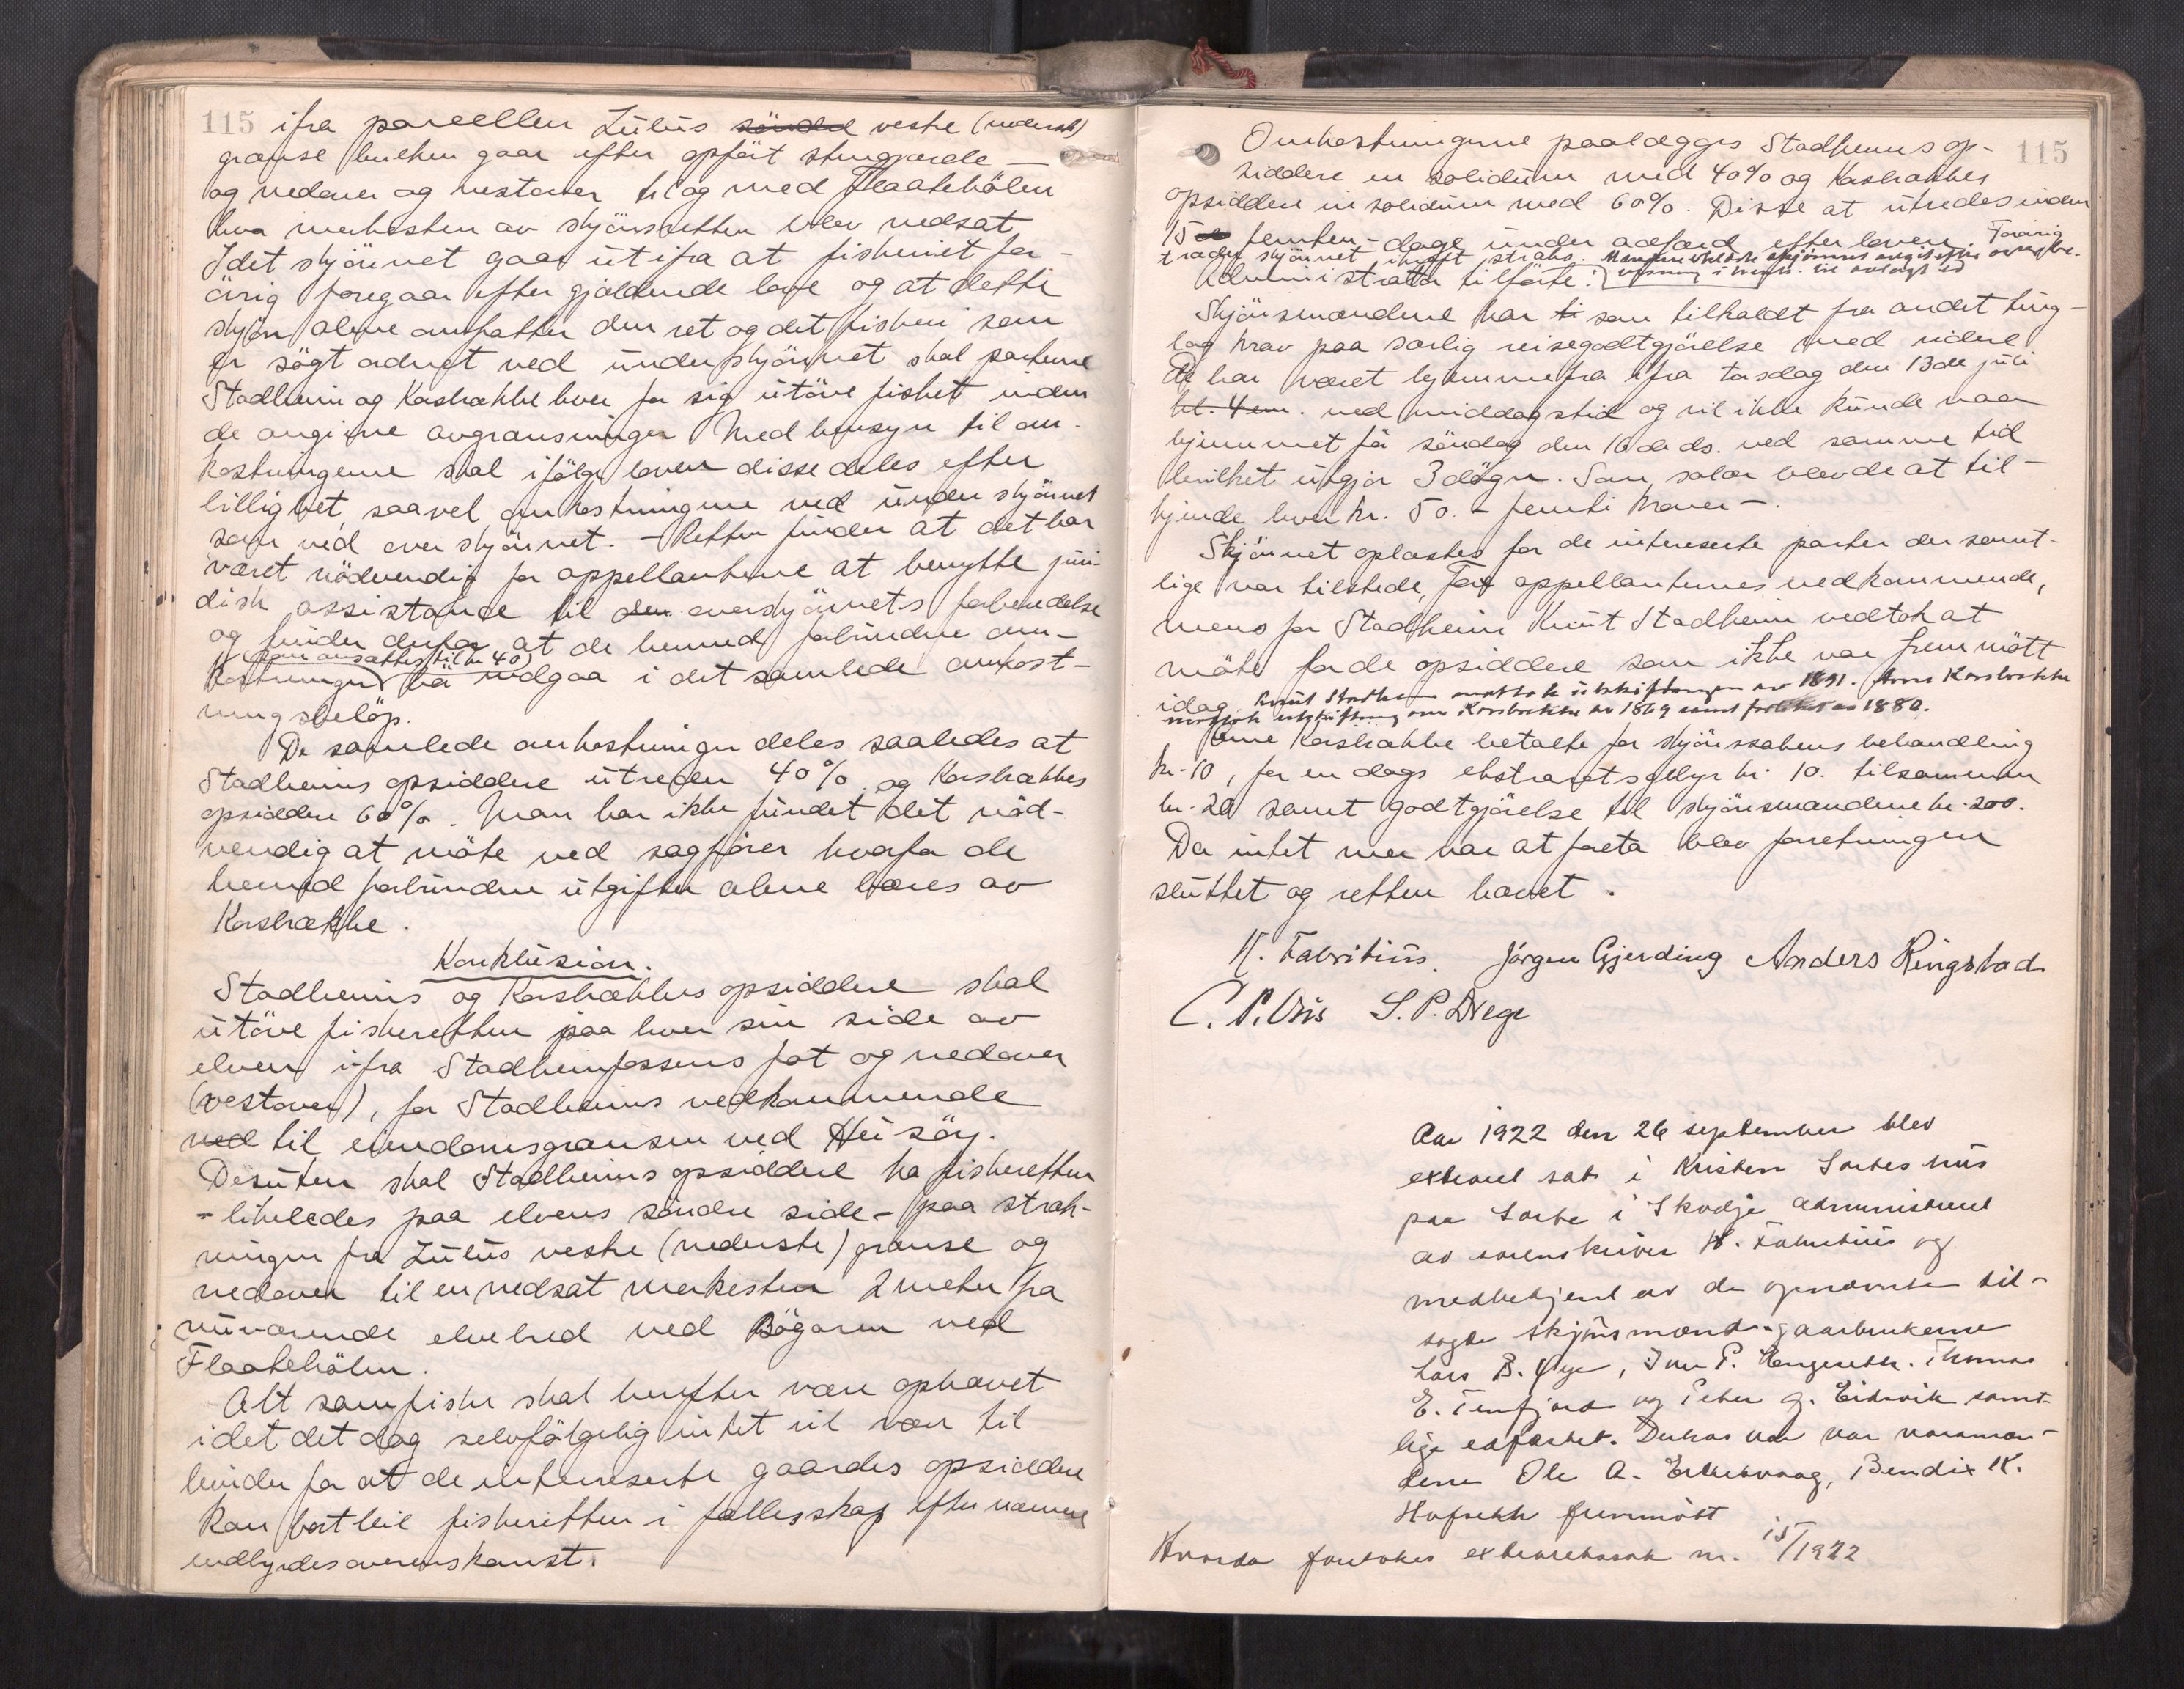 115 ifra parcellen Lulus söndre vestre (nederste)
grænse hvilken gaar efter opført stengjærde —
og nedover og vestover til og med Flaatehölen
hvor merkesten av skjönsretten blev nedsat.
Idet skjönnet gaar ut ifra at fiskeriet for-
övrig foregaar efter gjældende love og at dette
skjön alene omfatter den ret og det fiskeri som
er sögt ordnet ved underskjönnet skal parterne
Stadheim og Korsbrække hver for sig utöve fisket inden
de angivne avgrænsninger. Med hensyn til om-
kostningerne skal ifölge loven disse deles efter
billighet, saavel omkostningerne ved underskjönnet
som ved overskjönnet. — Retten finder at det har
været nödvendig for appellanterne at benytte juri-
disk assistance til den overskjönnets forberedelse
og finder derfor at de hermed forbundne om-
kostninger (som ansættes til kr 40) bör indgaa i det samlede omkost-
ningsbelöp.
De samlede omkostninger deles saaledes at
Stadheims opsiddere utreder 40% og Korsbrækkes
opsiddere 60%. Man har ikke fundet det nöd-
vendig at möte ved sagförer hvorfor de
hermed forbundne utgifter alene bæres av
Korsbrække.
Konklusion.
Stadheims og Korsbrækkes opsiddere skal
utöve fiskeretten paa hver sin side av
elven ifra Stadheimfossens fot og nedover
(vestover), for Stadheims vedkommende
ned til eiendomsgrænsen ved Heisöy.
Desuten skal Stadheims opsiddere ha fiskeretten
- likeledes paa elvens söndre side - paa stræk-
ningen fra Lulus vestre (nederste) grænse og
nedover til en nedsat merkesten 2 meter fra
nuværende elvebred ved Bögaren ved
Flaatehölen.
Alt samfiske skal herefter være ophævet
idet det dog selvfölgelig intet vil være til
hinder for at de interesserte gaardes opsiddere
kan bortleie fiskeretten i fællesskap efter nærmere
indbyrdes overenskomst.
115
Omkostningerne paalægges Stadheims op-
siddere in solidum med 40% og Korsbrækkes
opsiddere in solidum med 60%. Disse at utredes inden
15 femten - dage under adfærd efter loven. Forövrig
træder skjönnet i kraft straks.
Administrator tilförte:
Skjönsmændene har som tilkaldt fra andet ting-
lag krav paa særlig reisegodtgjörelse med videre
De har været hjemmefra ifra torsdag den 13de juli
kl. 4 em. ved middagstid og vil ikke kunde naa
hjemmet för söndag den 16de ds. ved samme tid
hvilket utgjör 3 dögn. Som salær blev de at til-
kjende hver kr. 50. - femti kroner -.
Skjönnet oplæstes for de interesserte parter der samt-
lige var tilstede, for appellanternes vedkommende,
mens for Stadheim Knut Stadheim vedtok at
möte for de opsiddere som ikke var fremmött
idag. Knut Stadheim mottok utskiftningen av 1891. Arne Korsbrække
mottok utskiftning over Korsbrække av 1869 samt forliket av 1880.
Arne Korsbrække betalte for skjönssakens behandling
kr. 10, for en dags ekstraretsgebyr kr. 10. tilsammen
kr. 20 samt godtgjörelse til skjönsmændene kr. 200.
Da intet mer var at foreta blev forretningen
sluttet og retten hævet.
H. Fabritius. Jörgen Gjerding Anders Ringstad
C. P. S. P. Drege
Aar 1922 den 26 september blev
extraret sat i Kristen Sortes hus
paa Sorte i Skodje administrert
av sorenskriver H. Fabritius og
medbetjent av de opnævnte til-
sagte skjönsmænd - gaarbrukerne
Lars B. Øye, Iver P.
E. Tenfjord og Peter G. Eidsvik samt-
lige edfæstet. Desuten var varamæn-
dene Ole A. Bendix K.
Hofseth fremmött
Hvorda foretokes extraretssak nr. 15/1922